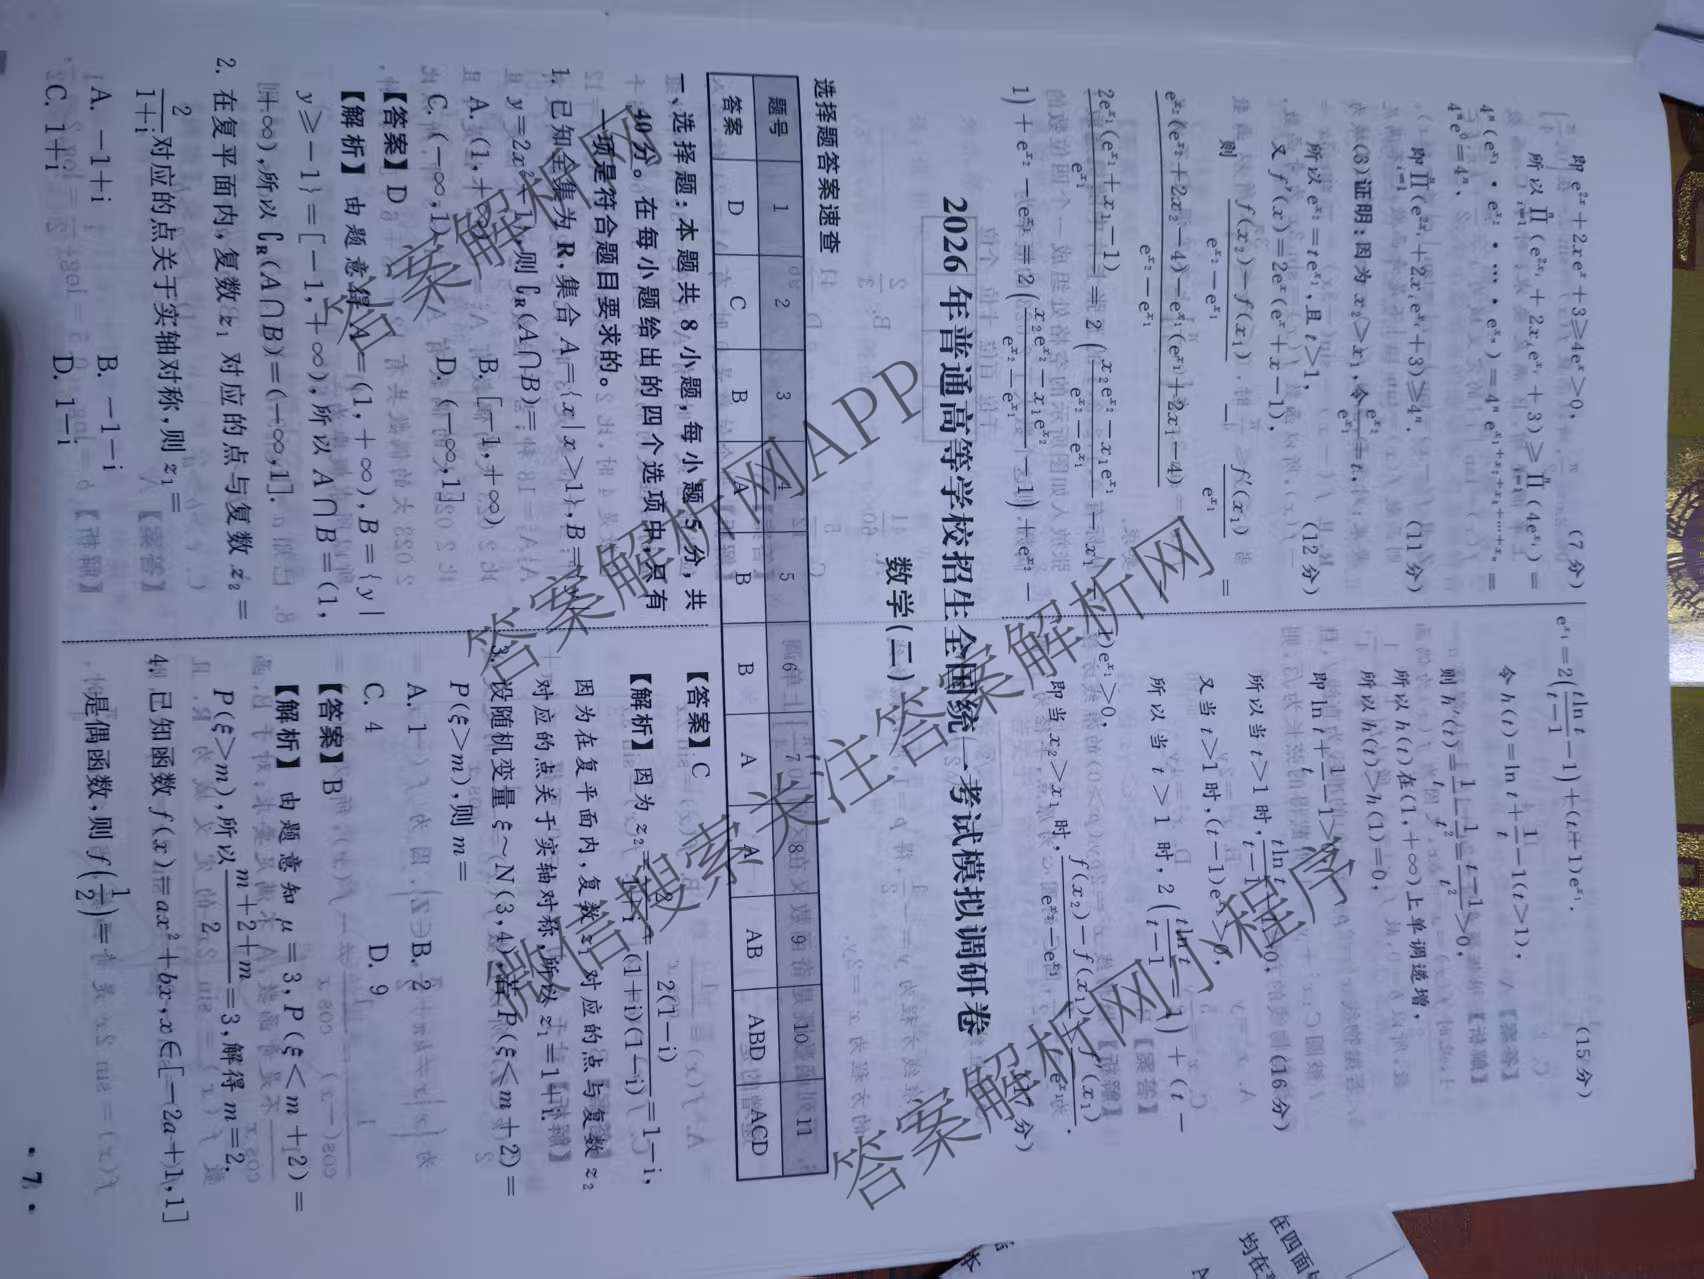 即 e^{2x}+2xe^x+3≥4e^x>0, (7分)
所以 ∏_{i=1}^{n}(e^{2x_i}+2x_ie^{x_i}+3)≥∏_{i=1}^{n}(4e^{x_i})=
4^n(e^{x_1}·e^{x_2}·…·e^{x_n})=4^n e^{x_1+x_2+x_3+…+x_n}=
4^n e^0=4^n,
即∏_{i=1}^{n}(e^{2x_i}+2x_ie^{x_i}+3)≥4^n. (11分)
(3)证明:因为 x_2>x_1,令 e^{x_2}/e^{x_1}=t,
所以 e^{x_2}=te^{x_1},且 t>1, (12分)
又 f′(x)=2e^x(e^x+x-1),
则 (f(x_2)-f(x_1))/(e^{x_2}-e^{x_1}) - f′(x_1)/e^{x_1} =
(e^{x_2}(e^{x_2}+2x_2-4)-e^{x_1}(e^{x_1}+2x_1-4))/(e^{x_2}-e^{x_1}) -
2e^{x_1}(e^{x_1}+x_1-1)/e^{x_1}=2((x_2e^{x_2}-x_1e^{x_1})/(e^{x_2}-e^{x_1})-x_1-
1)+e^{x_2}-e^{x_1}=2((x_2e^{x_2}-x_1e^{x_2})/(e^{x_2}-e^{x_1})-1)+e^{x_2}-
e^{x_1}=2(tln t/(t-1)-1)+(t-1)e^{x_1}. (15分)
令 h(t)=ln t+1/t-1(t>1),
则 h′(t)=1/t-1/t^2=(t-1)/t^2>0,
所以 h(t)在(1,+∞)上单调递增,
所以 h(t)>h(1)=0,
即 ln t+1/t-1>0,
所以当 t>1 时,tln t/(t-1)-1>0, (16分)
又当 t>1 时,(t-1)e^{x_1}>0,
所以当 t>1 时,2(tln t/(t-1)-1)+(t-
1)e^{x_1}>0,
即当 x_2>x_1 时,(f(x_2)-f(x_1))/(e^{x_2}-e^{x_1})>f′(x_1)/e^{x_1}.
(17分)
2026年普通高等学校招生全国统一考试模拟调研卷
数学(二)
选择题答案速查
题号 1 2 3 4 5 6 7 8 9 10 11
答案 D C B A B B A A AB ABD ACD
一、选择题:本题共8小题,每小题5分,共
40分。在每小题给出的四个选项中,只有
一项是符合题目要求的。
1. 已知全集为R,集合A={x|x>1},B={y|
y=2x^2-1},则∁_R(A∩B)=
A. (1,+∞) B. [-1,+∞)
C. (-∞,1) D. (-∞,1]
【答案】D
【解析】由题意得A=(1,+∞),B={y|
y≥-1}=[-1,+∞),所以A∩B=(1,
+∞),所以∁_R(A∩B)=(-∞,1].
2. 在复平面内,复数z_1对应的点与复数z_2=
2/(1+i)对应的点关于实轴对称,则z_1=
A. -1+i B. -1-i
C. 1+i D. 1-i
【答案】C
【解析】因为z_2=2/(1+i)=2(1-i)/((1+i)(1-i))=1-i,
因为在复平面内,复数z_1对应的点与复数z_2
对应的点关于实轴对称,所以z_1=1+i.
3. 设随机变量ξ~N(3,4),若P(ξ<m+2)=
P(ξ>m),则m=
A. 1 B. 2
C. 4 D. 9
【答案】B
【解析】由题意知μ=3,P(ξ<m+2)=
P(ξ>m),所以(m+2+m)/2=3,解得m=2.
4. 已知函数f(x)=ax^2+bx,x∈[-2a+1,1]
是偶函数,则f(1/2)=
·7·
答案解析网
答案解析网APP
微信搜索关注答案解析网
答案解析网小程序
在四面
均在